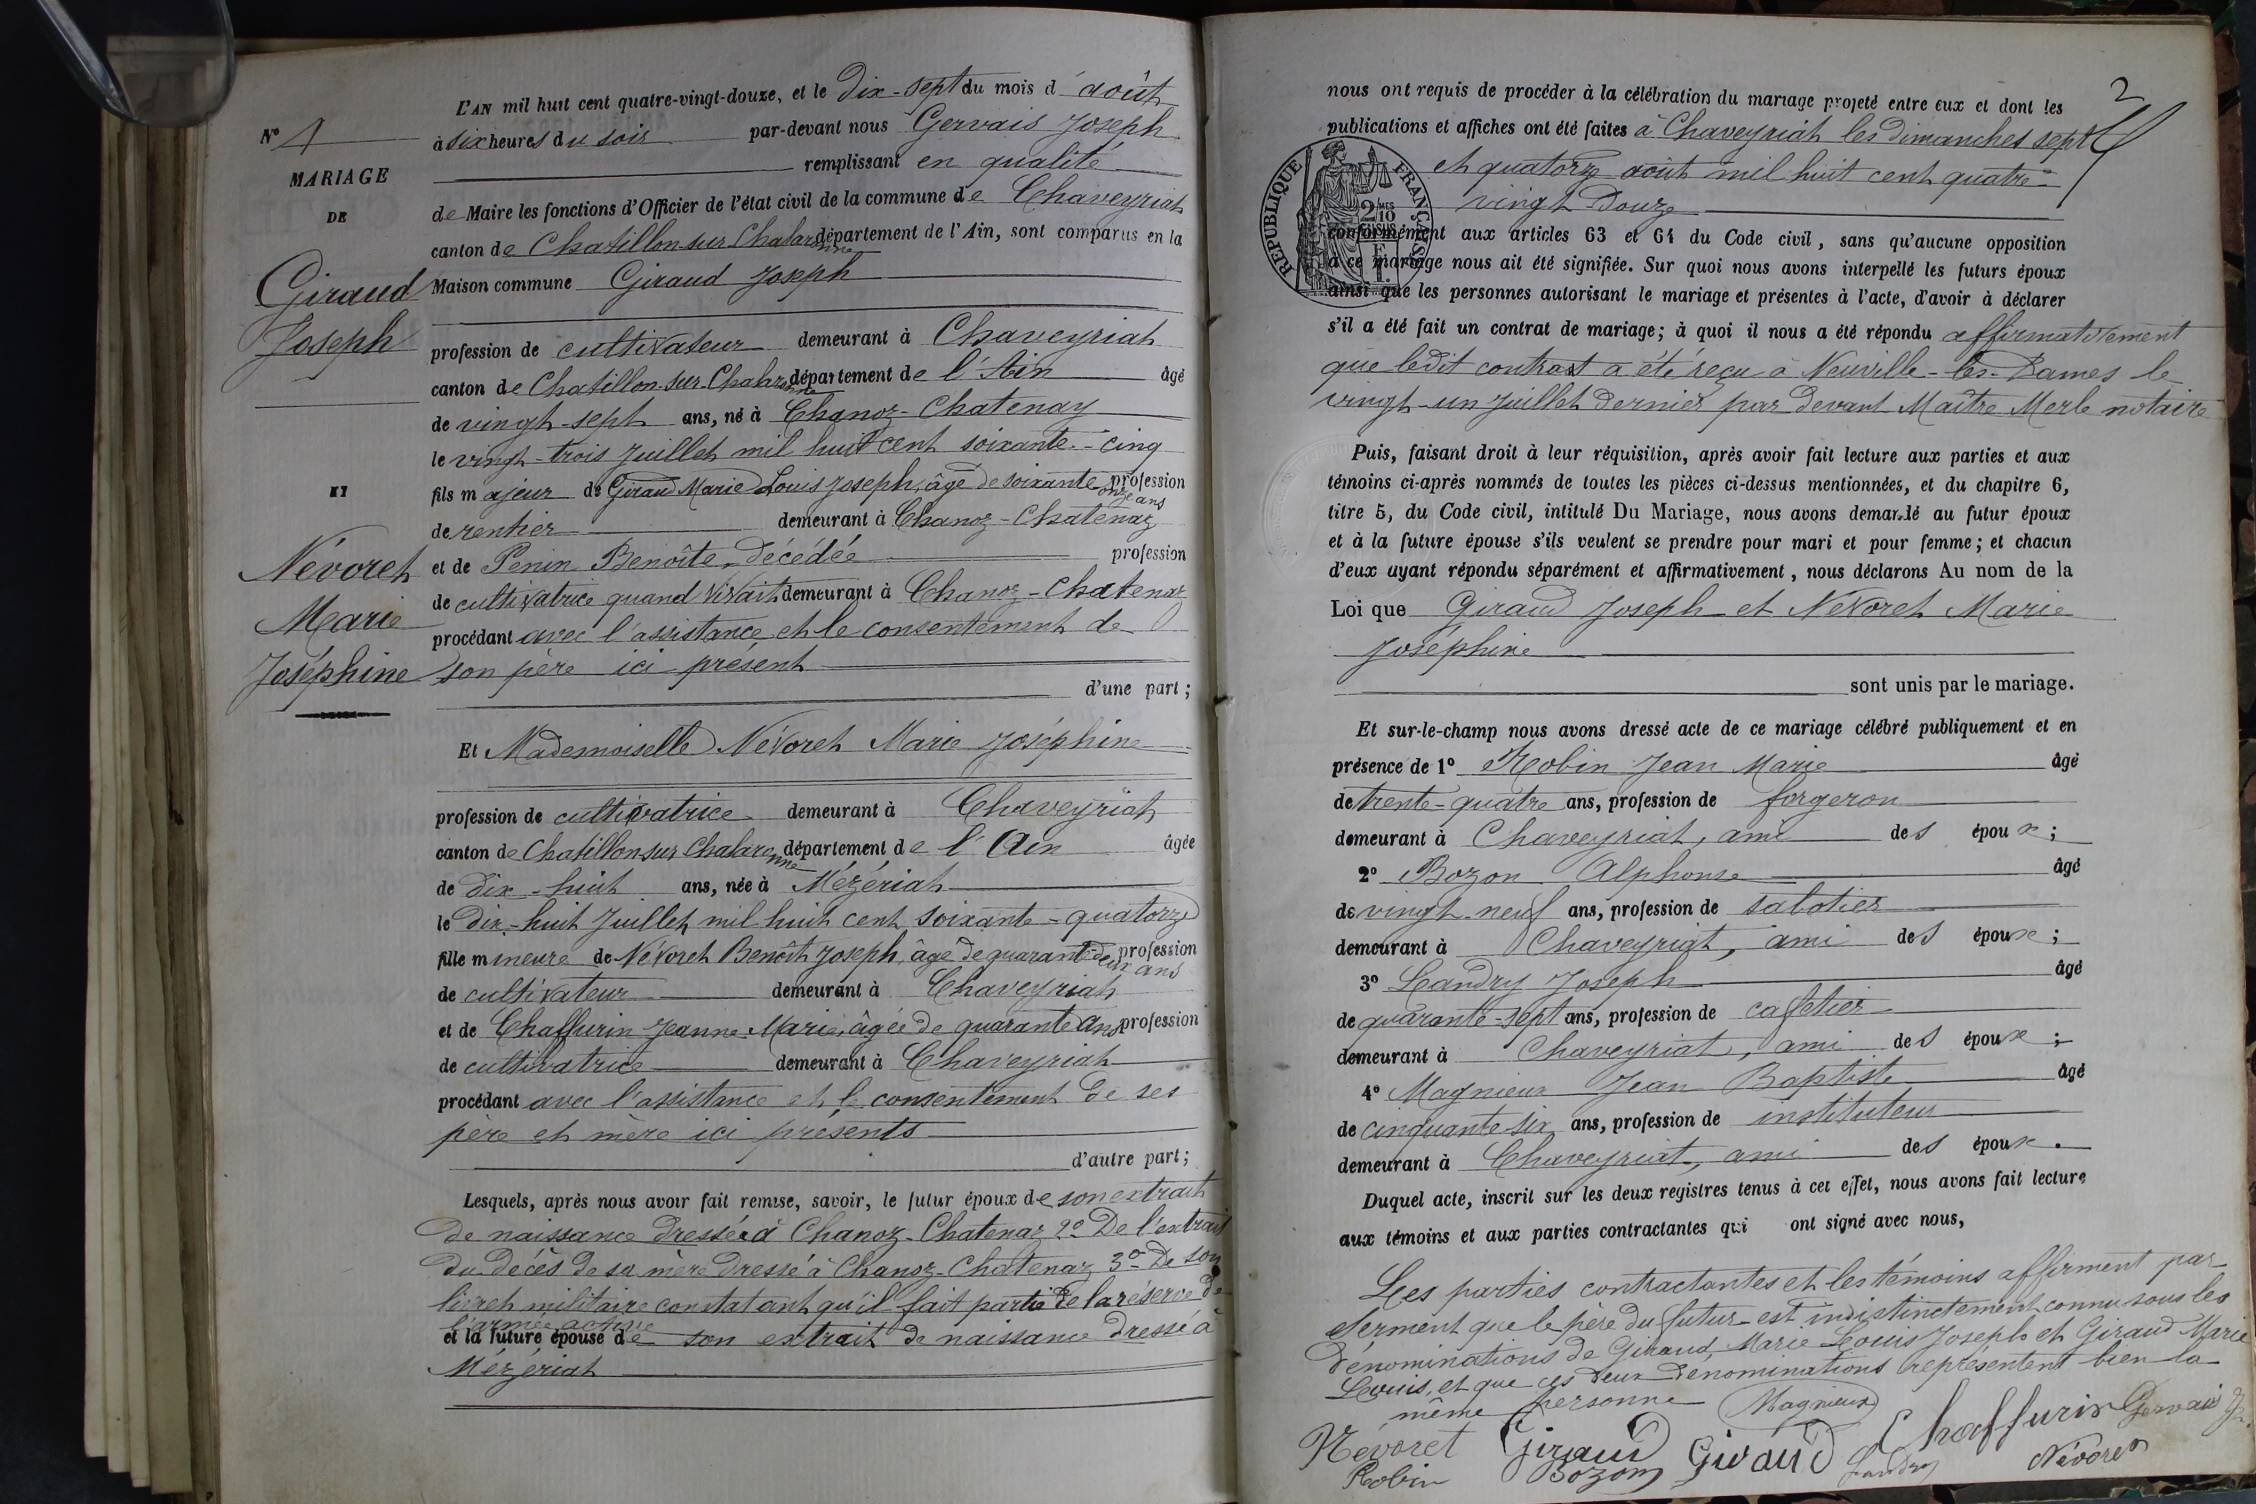 L'AN mil huit cent quatre-vingt-douze, et le dix-sept du mois d'août
à six heures du soir par-devant nous Gervais Joseph
remplissant en qualité
de Maire les fonctions d'Officier de l'état civil de la commune de Chaveyriat
canton de Chatillon sur Chalaronne département de l'Ain, sont comparus en la
Maison commune Giraud Joseph
profession de cultivateur demeurant à Chaveyriat
canton de Chatillon-sur-Chalaronne département de l'Ain âgé
de vingt-sept ans, né à Chanoz-Chatenay
le vingt-trois juillet mil huit cent soixante-cinq
fils majeur de Giraud Marie Louis Joseph, âgé de soixante onze ans profession
de rentier demeurant à Chanoz-Chatenay
et de Penin Benoîte, décédée profession
de cultivatrice quand vivait demeurant à Chanoz-Chatenay
procédant avec l'assistance et le consentement de
son père ici présent
d'une part;
Et Mademoiselle Névoret Marie Joséphine
profession de cultivatrice demeurant à Chaveyriat
canton de Chatillon sur Chalaronne département de l'Ain âgée
de dix-huit ans, née à Mézériat
le dix-huit juillet mil huit cent soixante-quatorze
fille mineure de Névoret Benoît Joseph, âgé de quarante-deux ans profession
de cultivateur demeurant à Chaveyriat
et de Chaffurin Jeanne Marie, âgée de quarante ans profession
de cultivatrice demeurant à Chaveyriat
procédant avec l'assistance et le consentement de ses
père et mère ici présents
d'autre part;
Lesquels, après nous avoir fait remise, savoir, le futur époux de son extrait
de naissance dressé à Chanoz-Chatenay 2º De l'extrait
du décès de sa mère dressé à Chanoz-Chatenay 3º De son
livret militaire constatant qu'il fait partie de la réserve de
l'armée active
et la future épouse de son extrait de naissance dressé à
Mézériat
Nº 1
MARIAGE
DE
Giraud
Joseph
ET
Névoret
Marie
Joséphine
2
nous ont requis de procéder à la célébration du mariage projeté entre eux et dont les
publications et affiches ont été faites à Chaveyriat les dimanches sept
et quatorze août mil huit cent quatre-
vingt douze
conformément aux articles 63 et 64 du Code civil, sans qu'aucune opposition
à ce mariage nous ait été signifiée. Sur quoi nous avons interpellé les futurs époux
ainsi que les personnes autorisant le mariage et présentes à l'acte, d'avoir à déclarer
s'il a été fait un contrat de mariage; à quoi il nous a été répondu affirmativement
que ledit contrat a été reçu à Neuville-les-Dames le
vingt-un juillet dernier par devant Maître Merle notaire
REPUBLIQUE FRANÇAISE
2/10
EN SUS
Puis, faisant droit à leur réquisition, après avoir fait lecture aux parties et aux
témoins ci-après nommés de toutes les pièces ci-dessus mentionnées, et du chapitre 6,
titre 5, du Code civil, intitulé Du Mariage, nous avons demandé au futur époux
et à la future épouse s'ils veulent se prendre pour mari et pour femme; et chacun
d'eux ayant répondu séparément et affirmativement, nous déclarons Au nom de la
Loi que Giraud Joseph et Névoret Marie
Joséphine
sont unis par le mariage.
Et sur-le-champ nous avons dressé acte de ce mariage célébré publiquement et en
présence de 1º Robin Jean Marie âgé
de trente-quatre ans, profession de forgeron
demeurant à Chaveyriat, ami des époux;
2º Bozon Alphonse âgé
de vingt-neuf ans, profession de sabotier
demeurant à Chaveyriat, ami des époux;
3º Landry Joseph âgé
de quarante-sept ans, profession de cafetier
demeurant à Chaveyriat, ami des époux;
4º Magnieux Jean Baptiste âgé
de cinquante-six ans, profession de instituteur
demeurant à Chaveyriat, ami des époux.
Duquel acte, inscrit sur les deux registres tenus à cet effet, nous avons fait lecture
aux témoins et aux parties contractantes qui ont signé avec nous,
Les parties contractantes et les témoins affirment par
serment que le père du futur est indistinctement connu sous les
dénominations de Giraud, Marie Louis Joseph et Giraud Marie
Louis, et que ces deux dénominations représentent bien la
même personne Magnieux
Névoret Giraud Giraud Chaffurin Gervais
Robin Bozon Landry Névoret